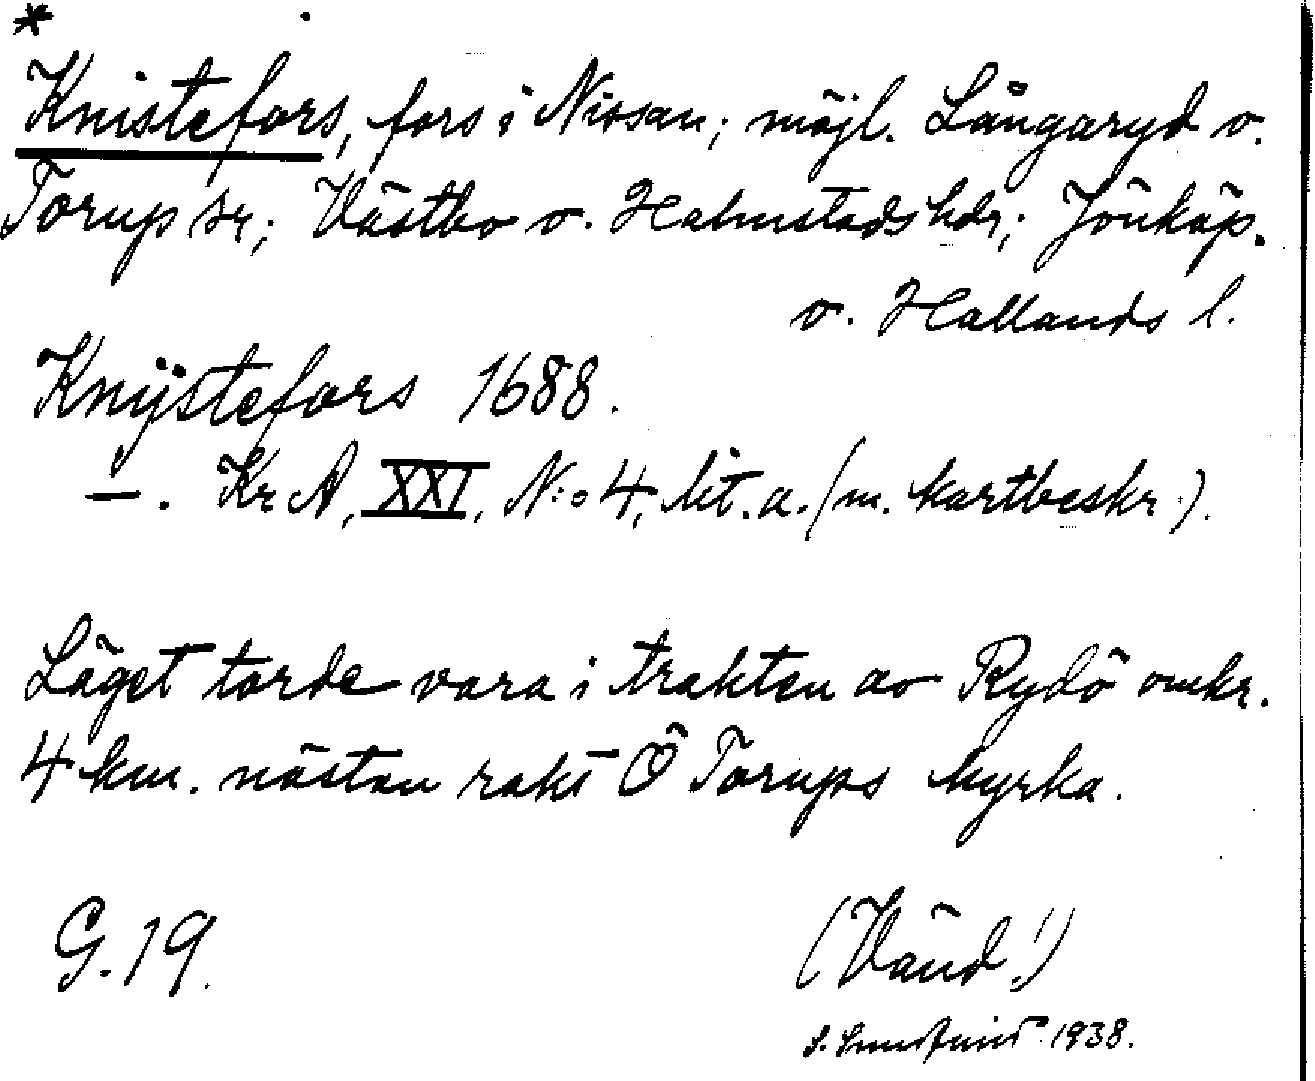 *
Knistefors, fors i Nissan; möjl. Långaryd o.
Torup sr; Västbo o. Halmstads hdr; Jönköp.
o. Hallands l.
Knÿstefors 1688.
—. Kr A, XXI, N:o 4, lit. a. (m. kartbeskr.).
Läget torde vara i trakten av Rydö omkr.
4 km. nästan rakt Ö Torups kyrka.
G. 19.
(Vänd!)
S. 1938.